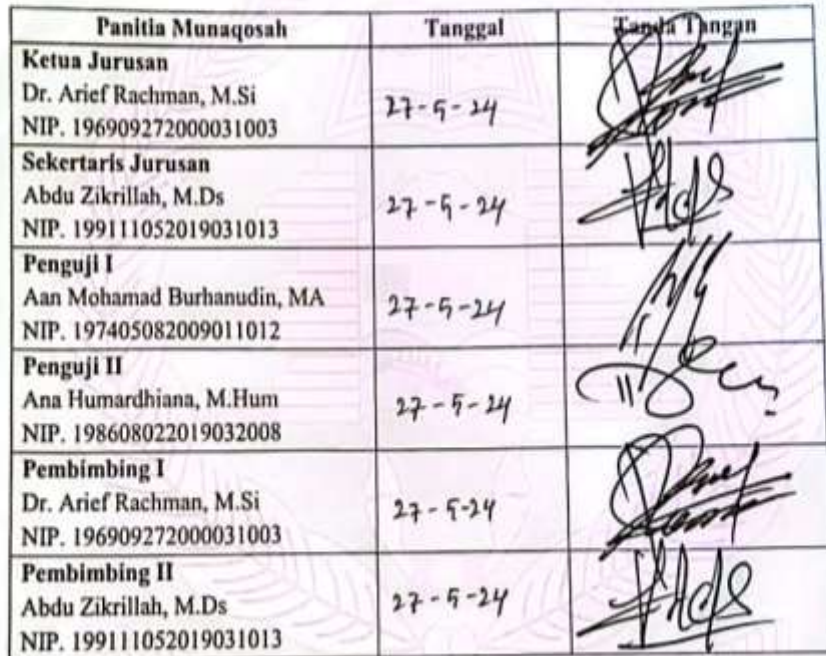 Panitia Munaqosah Tanggal Tanda Tangan
Ketua Jurusan
Dr. Arief Rachman, M.Si
NIP. 196909272000031003
27-5-24
Sekertaris Jurusan
Abdu Zikrillah, M.Ds
NIP. 199111052019031013
27-5-24
Penguji I
Aan Mohamad Burhanudin, MA
NIP. 197405082009011012
27-5-24
Penguji II
Ana Humardhiana, M.Hum
NIP. 198608022019032008
27-5-24
Pembimbing I
Dr. Arief Rachman, M.Si
NIP. 196909272000031003
27-5-24
Pembimbing II
Abdu Zikrillah, M.Ds
NIP. 199111052019031013
27-5-24